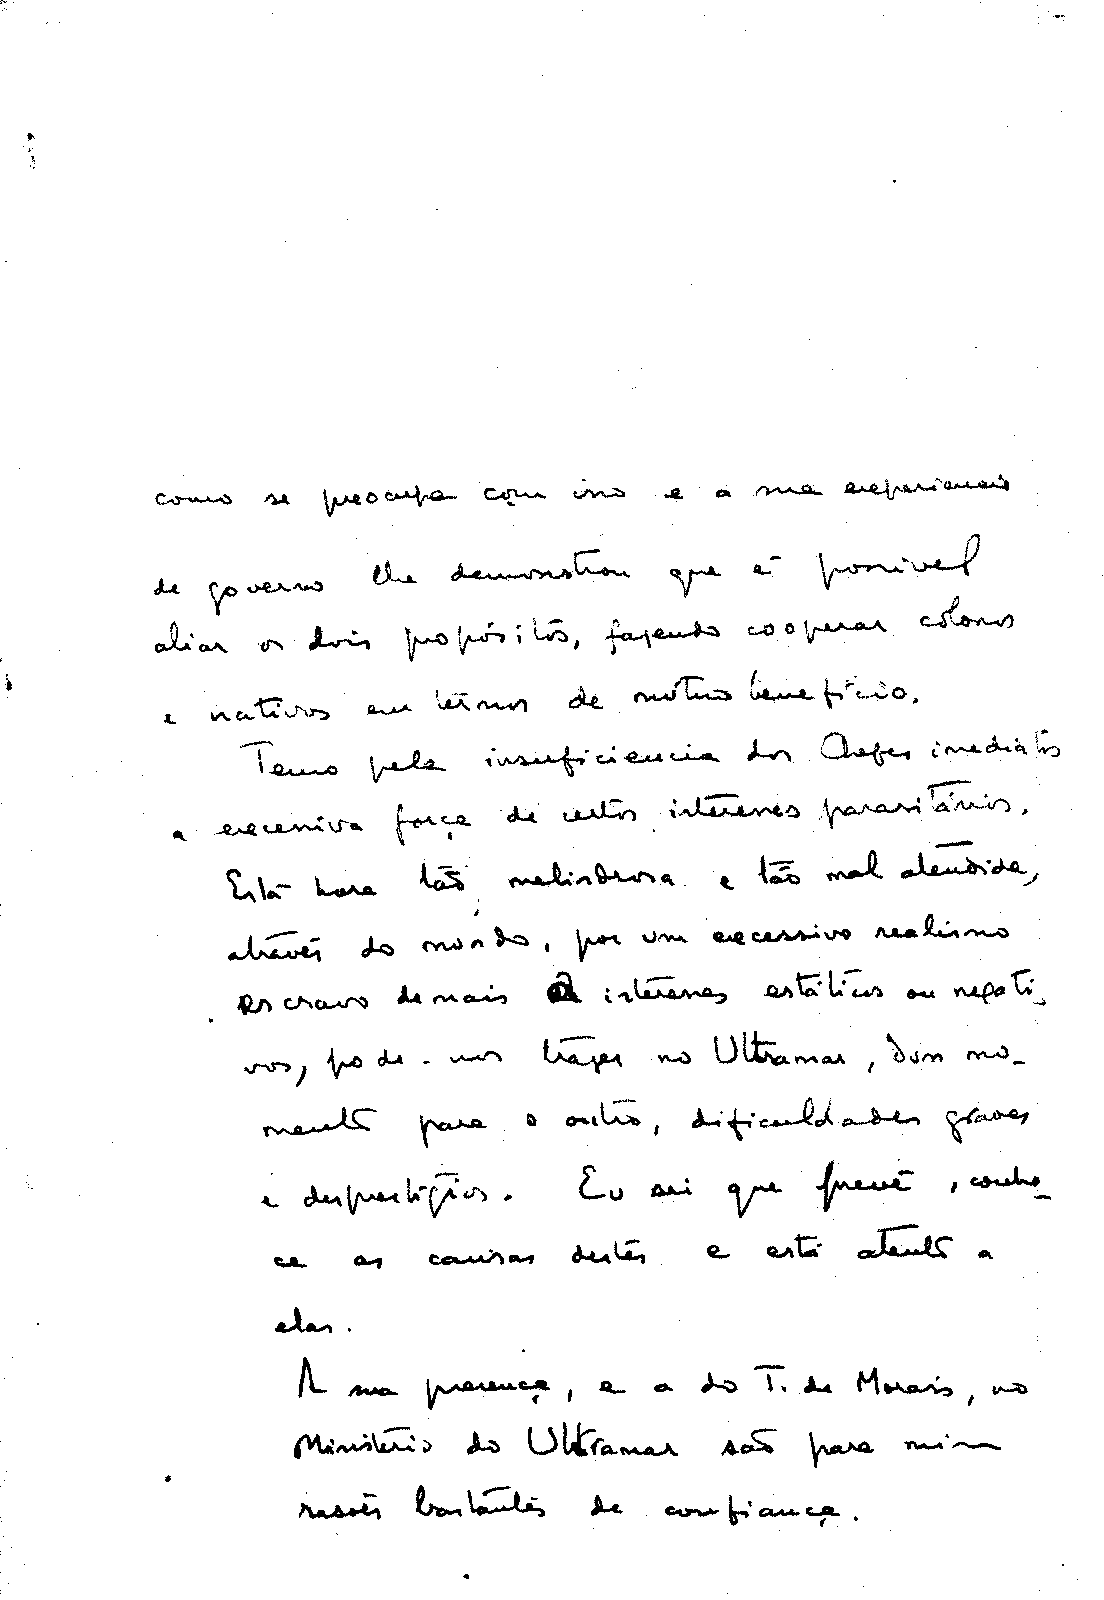 como se preocupa com isso e a sua experiencia
de governo lhe demonstrou que é possivel
aliar os dois propósitos, fazendo cooperar colonos
e nativos em termos de mútuo beneficio.
Temo pela insuficiencia dos Chefes imediatos
a excessiva força de certos interesses parasitários.
Está hora tão melindrosa e tão mal atendida,
através do mundo, por um excessivo realismo
escravo demais a interesses estáticos ou negati-
vos, pode-nos trazer no Ultramar, dum mo-
mento para o outro, dificuldades graves
e desprestigios. Eu sei que prevê, conhe-
ce as causas destes e está atento a
elas.
A sua presença, e a do T. de Morais, no
Ministério do Ultramar são para mim
rasões bastantes de confiança.